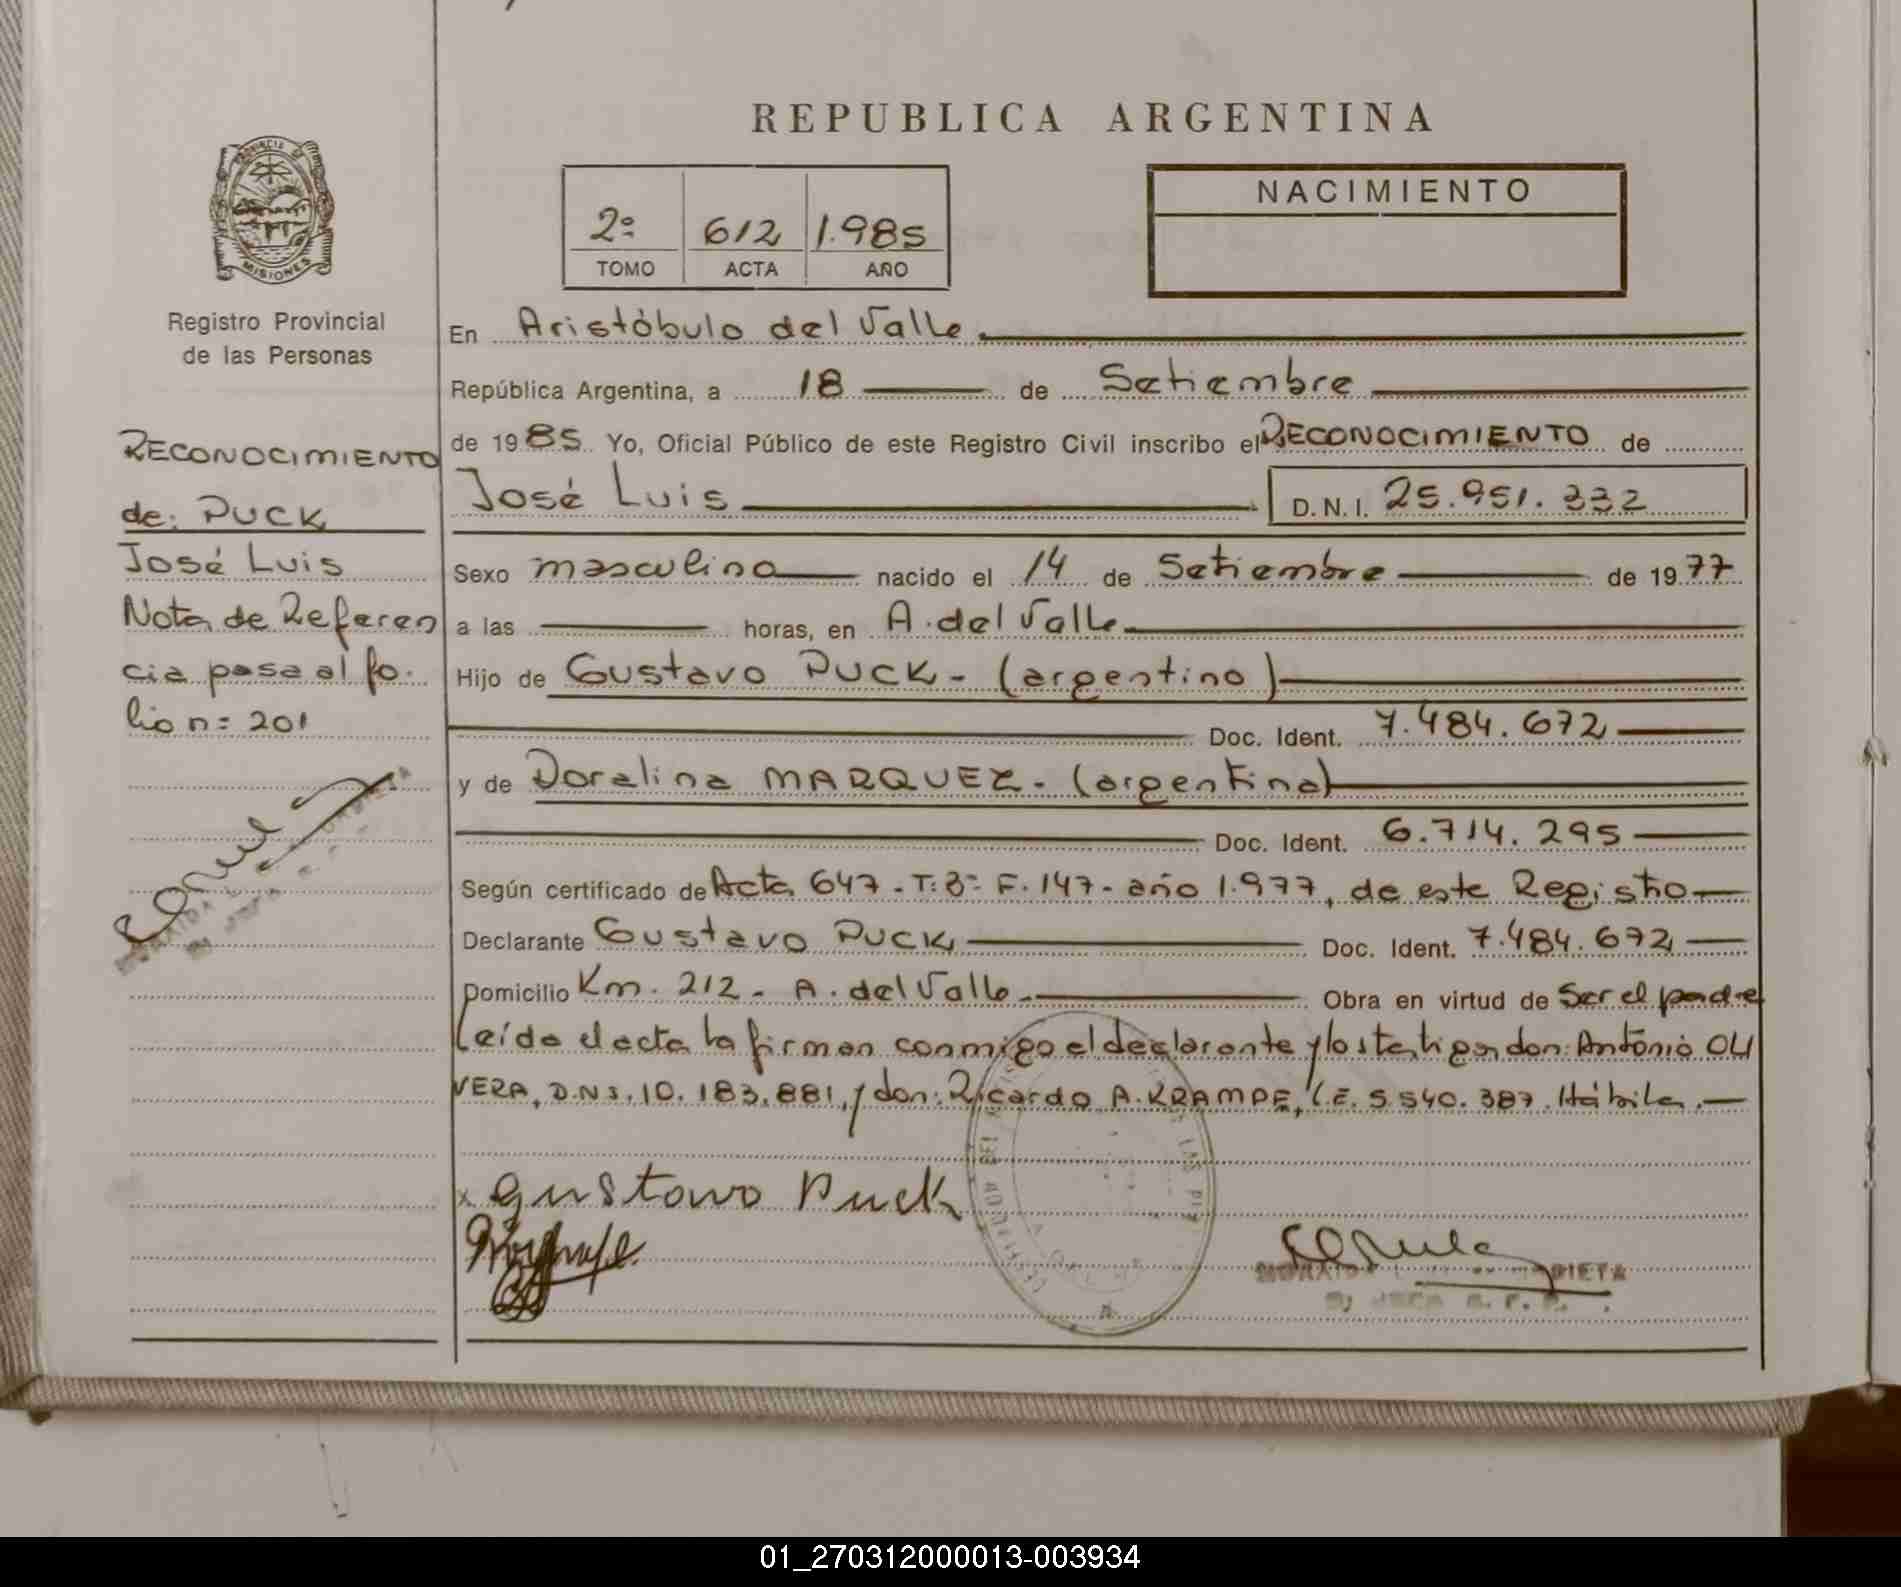 REPUBLICA ARGENTINA
PROVINCIA DE
MISIONES
Registro Provincial
de las Personas
2º 612 1.985
TOMO ACTA AÑO
NACIMIENTO
RECONOCIMIENTO
de: PUCK
José Luis
Nota de Referen
cia pasa al fo.
lio n= 201
En Aristóbulo del Valle.
República Argentina, a 18 de Setiembre
de 1985 Yo, Oficial Público de este Registro Civil inscribo el RECONOCIMIENTO de
José Luis D.N.I. 25.951.332
Sexo masculino nacido el 14 de Setiembre de 1977
a las horas, en A. del Valle.
Hijo de Gustavo PUCK - (argentino)
Doc. Ident. 7.484.672
y de Doralina MARQUEZ - (argentina)
Doc. Ident. 6.714.295
Según certificado de Acta 647 - T: 3º F. 147 - año 1.977, de este Registro
Declarante Gustavo PUCK Doc. Ident. 7.484.672
Domicilio Km. 212 - A. del Valle. Obra en virtud de Ser el padre
Leída el acta la firman conmigo el declarante y los testigos don: Antonio OLI
VERA, D.N.I. 10.183.881, y don: Ricardo A. KRAMPE, L.E. 5.540.387. Hábiles.
x Gustavo Puck
01_270312000013-003934